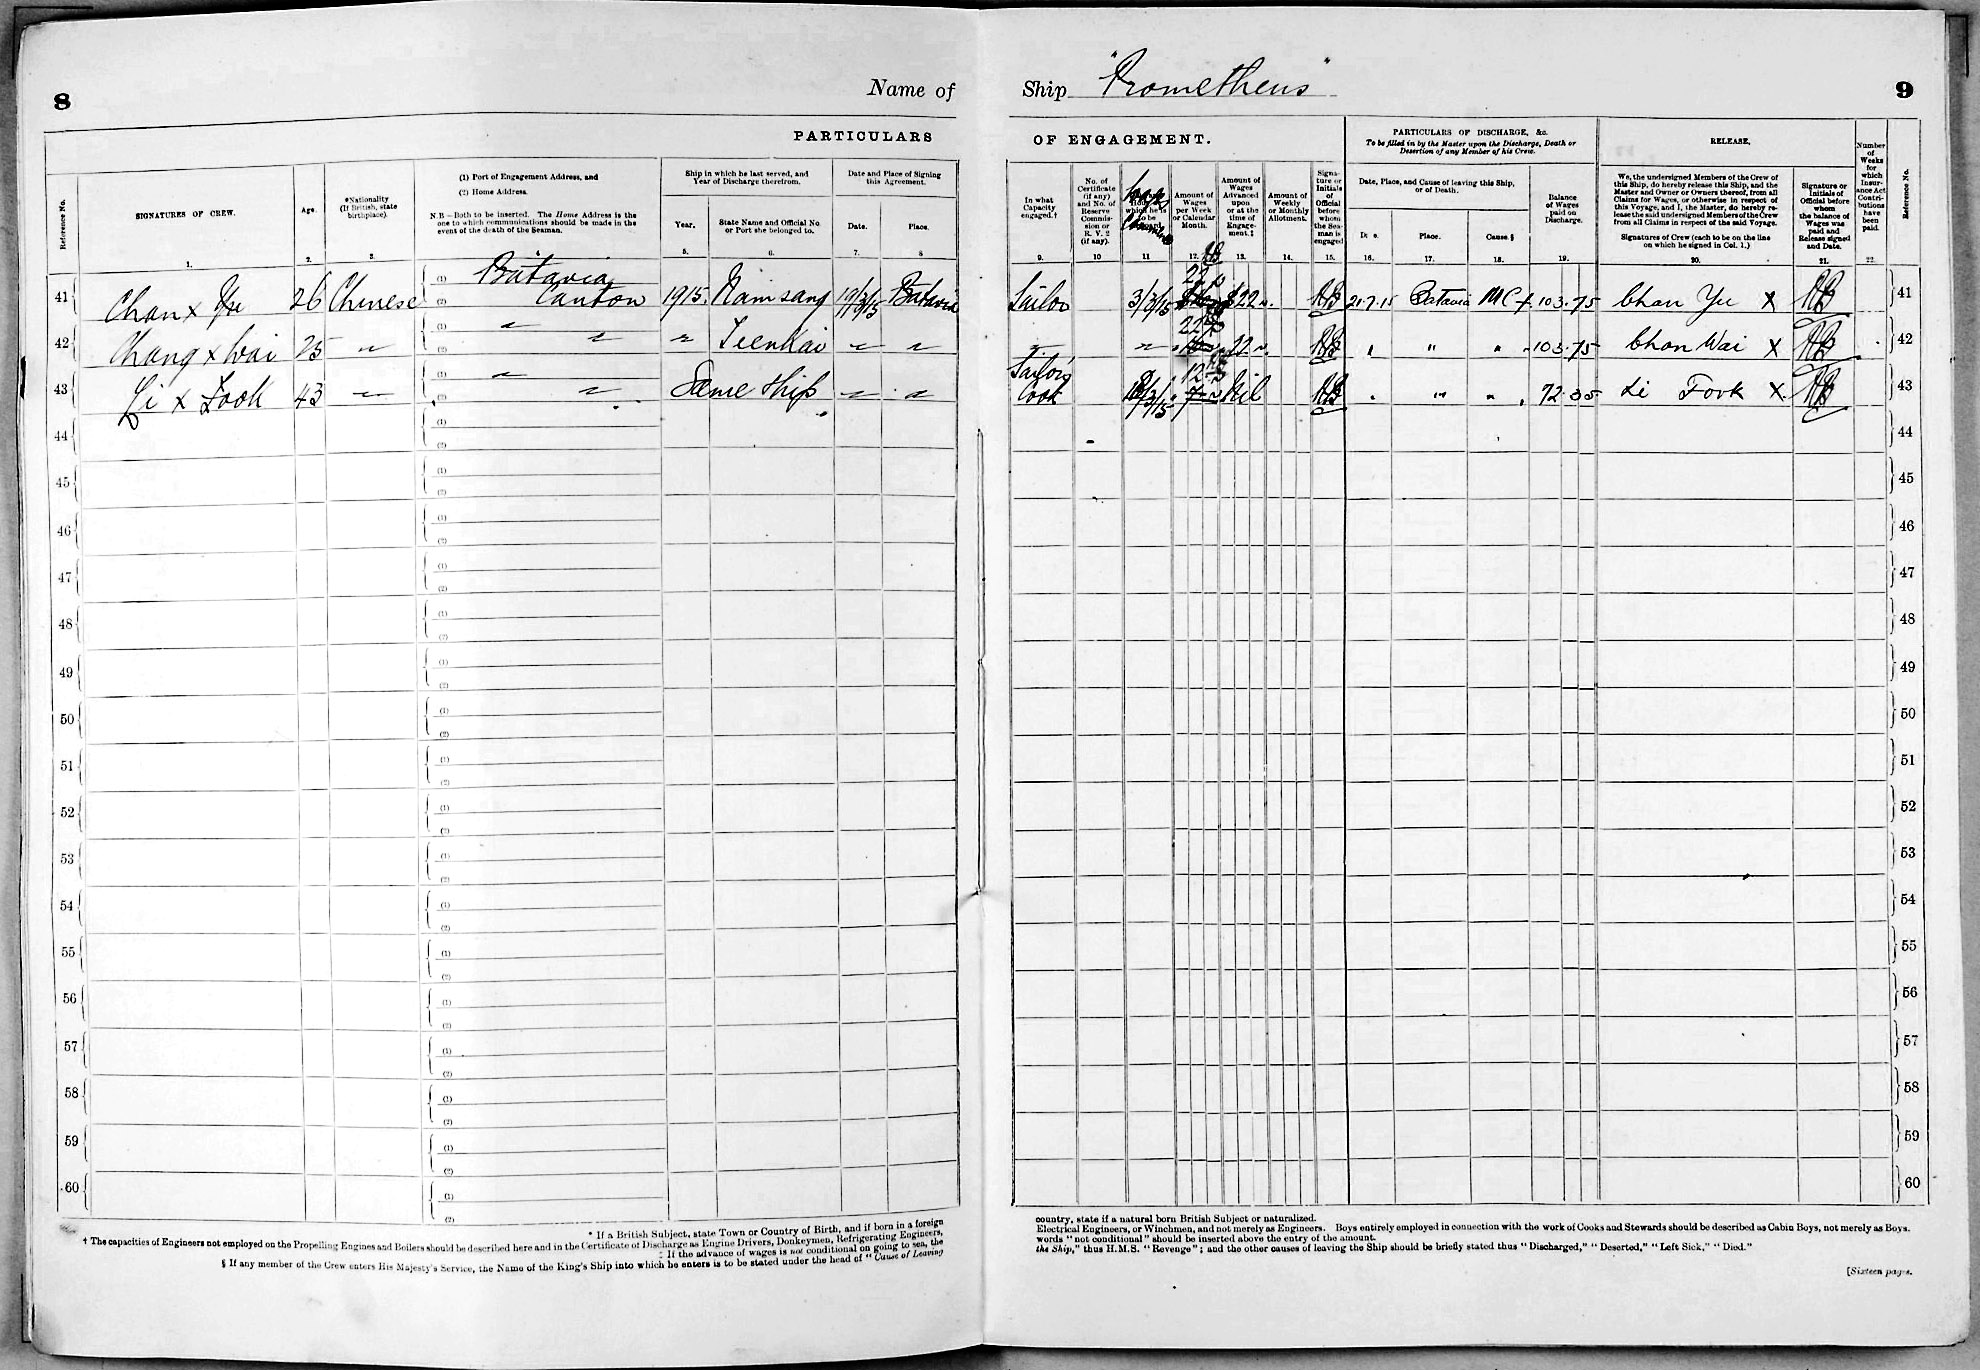 8
Name of
Ship "Prometheus"
9
PARTICULARS
OF ENGAGEMENT.
PARTICULARS OF DISCHARGE, &c.
To be filled in by the Master upon the Discharge, Death or
Desertion of any Member of his Crew.
RELEASE.
Reference No.
SIGNATURES OF CREW.
1.
Age.
2.
*Nationality
(If British, state
birthplace).
3.
(1) Port of Engagement Address, and
(2) Home Address.
N.B—Both to be inserted. The Home Address is the
one to which communications should be made in the
event of the death of the Seaman.
4
Ship in which he last served, and
Year of Discharge therefrom.
Year.
5.
State Name and Official No.
or Port she belonged to.
6.
Date and Place of Signing
this Agreement.
Date.
7.
Place.
8
In what
Capacity
engaged.†
9.
No. of
Certificate
(if any)
and No. of
Reserve
Commis-
sion or
R. V. 2
(if any).
10
11
Amount of
Wages
per Week
or Calendar
Month.
12.
Amount of
Wages
Advanced
upon
or at the
time of
Engage-
ment.‡
13.
Amount of
Weekly
or Monthly
Allotment.
14.
Signa-
ture or
Initials
of
Official
before
whom
the Sea-
man is
engaged
15.
Date, Place, and Cause of leaving this Ship,
or of Death.
16.
Place.
17.
Cause.§
18.
Balance
of Wages
paid on
Discharge.
19.
We, the undersigned Members of the Crew of
this Ship, do hereby release this Ship, and the
Master and Owner or Owners thereof, from all
Claims for Wages, or otherwise in respect of
this Voyage, and I, the Master, do hereby re-
lease the said undersigned Members of the Crew
from all Claims in respect of the said Voyage.
Signatures of Crew (each to be on the line
on which he signed in Col. 1.)
20.
Signature or
Initials of
Official before
whom
the balance of
Wages was
paid and
Release signed
and Date.
21.
Number
of
Weeks
for
which
Insur-
ance Act
Contri-
butions
have
been
paid.
22.
Reference No.
41 Chan x Yu 26 Chinese (1) Batavia (2) Canton 1915. Namsang 19/3/15 Batavia Sailor 3/3/15 22 $22 21.7.15 Batavia MC 103.75 Chan Yu X 41
42 Chang x Wai 25 " (1) " (2) " " Teenkai " " " " 22 " " " 103.75 Chan Wai X 42
43 Li x Fook 43 " (1) " (2) " Same Ship " " Sailor's Cook 12 Nil " " " 72.35 Li Fook X 43
44 (1) (2) 44
45 (1) (2) 45
46 (1) (2) 46
47 (1) (2) 47
48 (1) (2) 48
49 (1) (2) 49
50 (1) (2) 50
51 (1) (2) 51
52 (1) (2) 52
53 (1) (2) 53
54 (1) (2) 54
55 (1) (2) 55
56 (1) (2) 56
57 (1) (2) 57
58 (1) (2) 58
59 (1) (2) 59
60 (1) (2) 60
* If a British Subject, state Town or Country of Birth, and if born in a foreign
† The capacities of Engineers not employed on the Propelling Engines and Boilers should be described here and in the Certificate of Discharge as Engine Drivers, Donkeymen, Refrigerating Engineers,
‡ If the advance of wages is not conditional on going to sea, the
§ If any member of the Crew enters His Majesty's Service, the Name of the King's Ship into which he enters is to be stated under the head of "Cause of Leaving
country, state if a natural born British Subject or naturalized.
Electrical Engineers, or Winchmen, and not merely as Engineers. Boys entirely employed in connection with the work of Cooks and Stewards should be described as Cabin Boys, not merely as Boys.
words "not conditional" should be inserted above the entry of the amount.
the Ship," thus H.M.S. "Revenge"; and the other causes of leaving the Ship should be briefly stated thus "Discharged," "Deserted," "Left Sick," "Died."
[Sixteen pages.